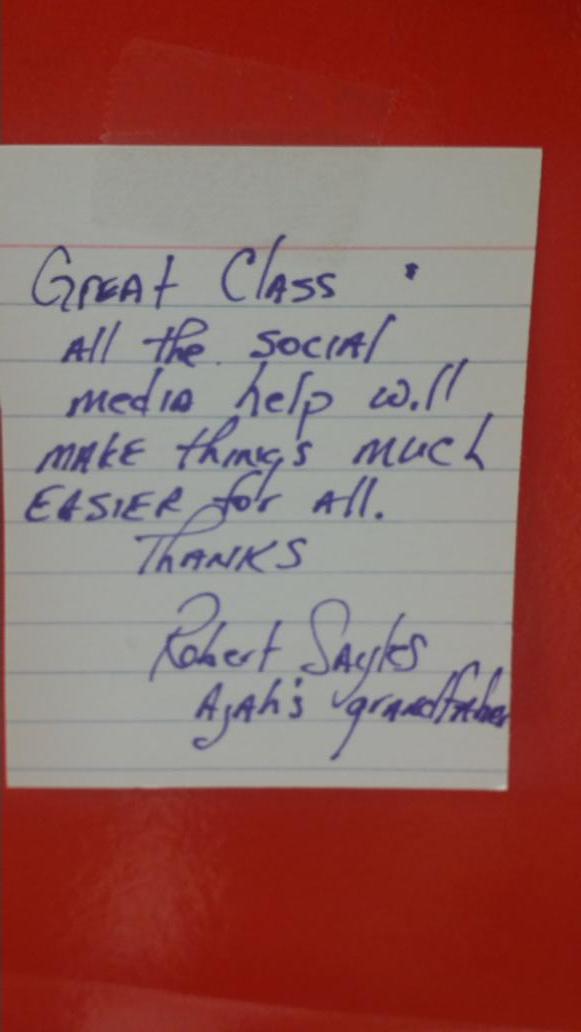 Great Class .
All the social
media help will
make things much
easier for all.
Thanks
Robert Sayles
Ajah's grandfather